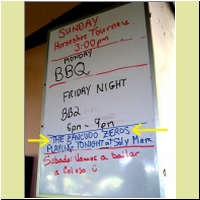 SUNDAY
Horseshoe Tourney
3:00pm
MONDAY
BBQ
FRIDAY NIGHT
BB2
6pm - 9pm
THE ZANCUDO ZEROS
PLAYING TONIGHT at Sly Mar
Sabado: Vamos a bailar
a Coloso